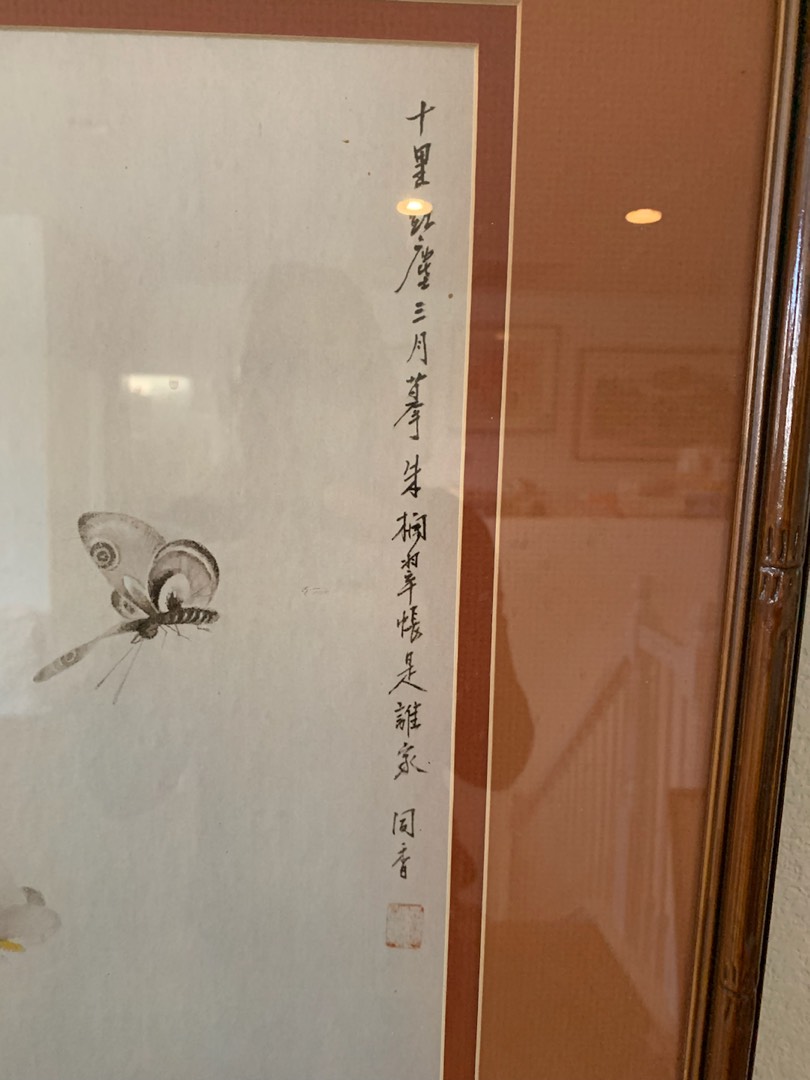 十里紅塵三月摹朱欄翠帳是誰家 同香